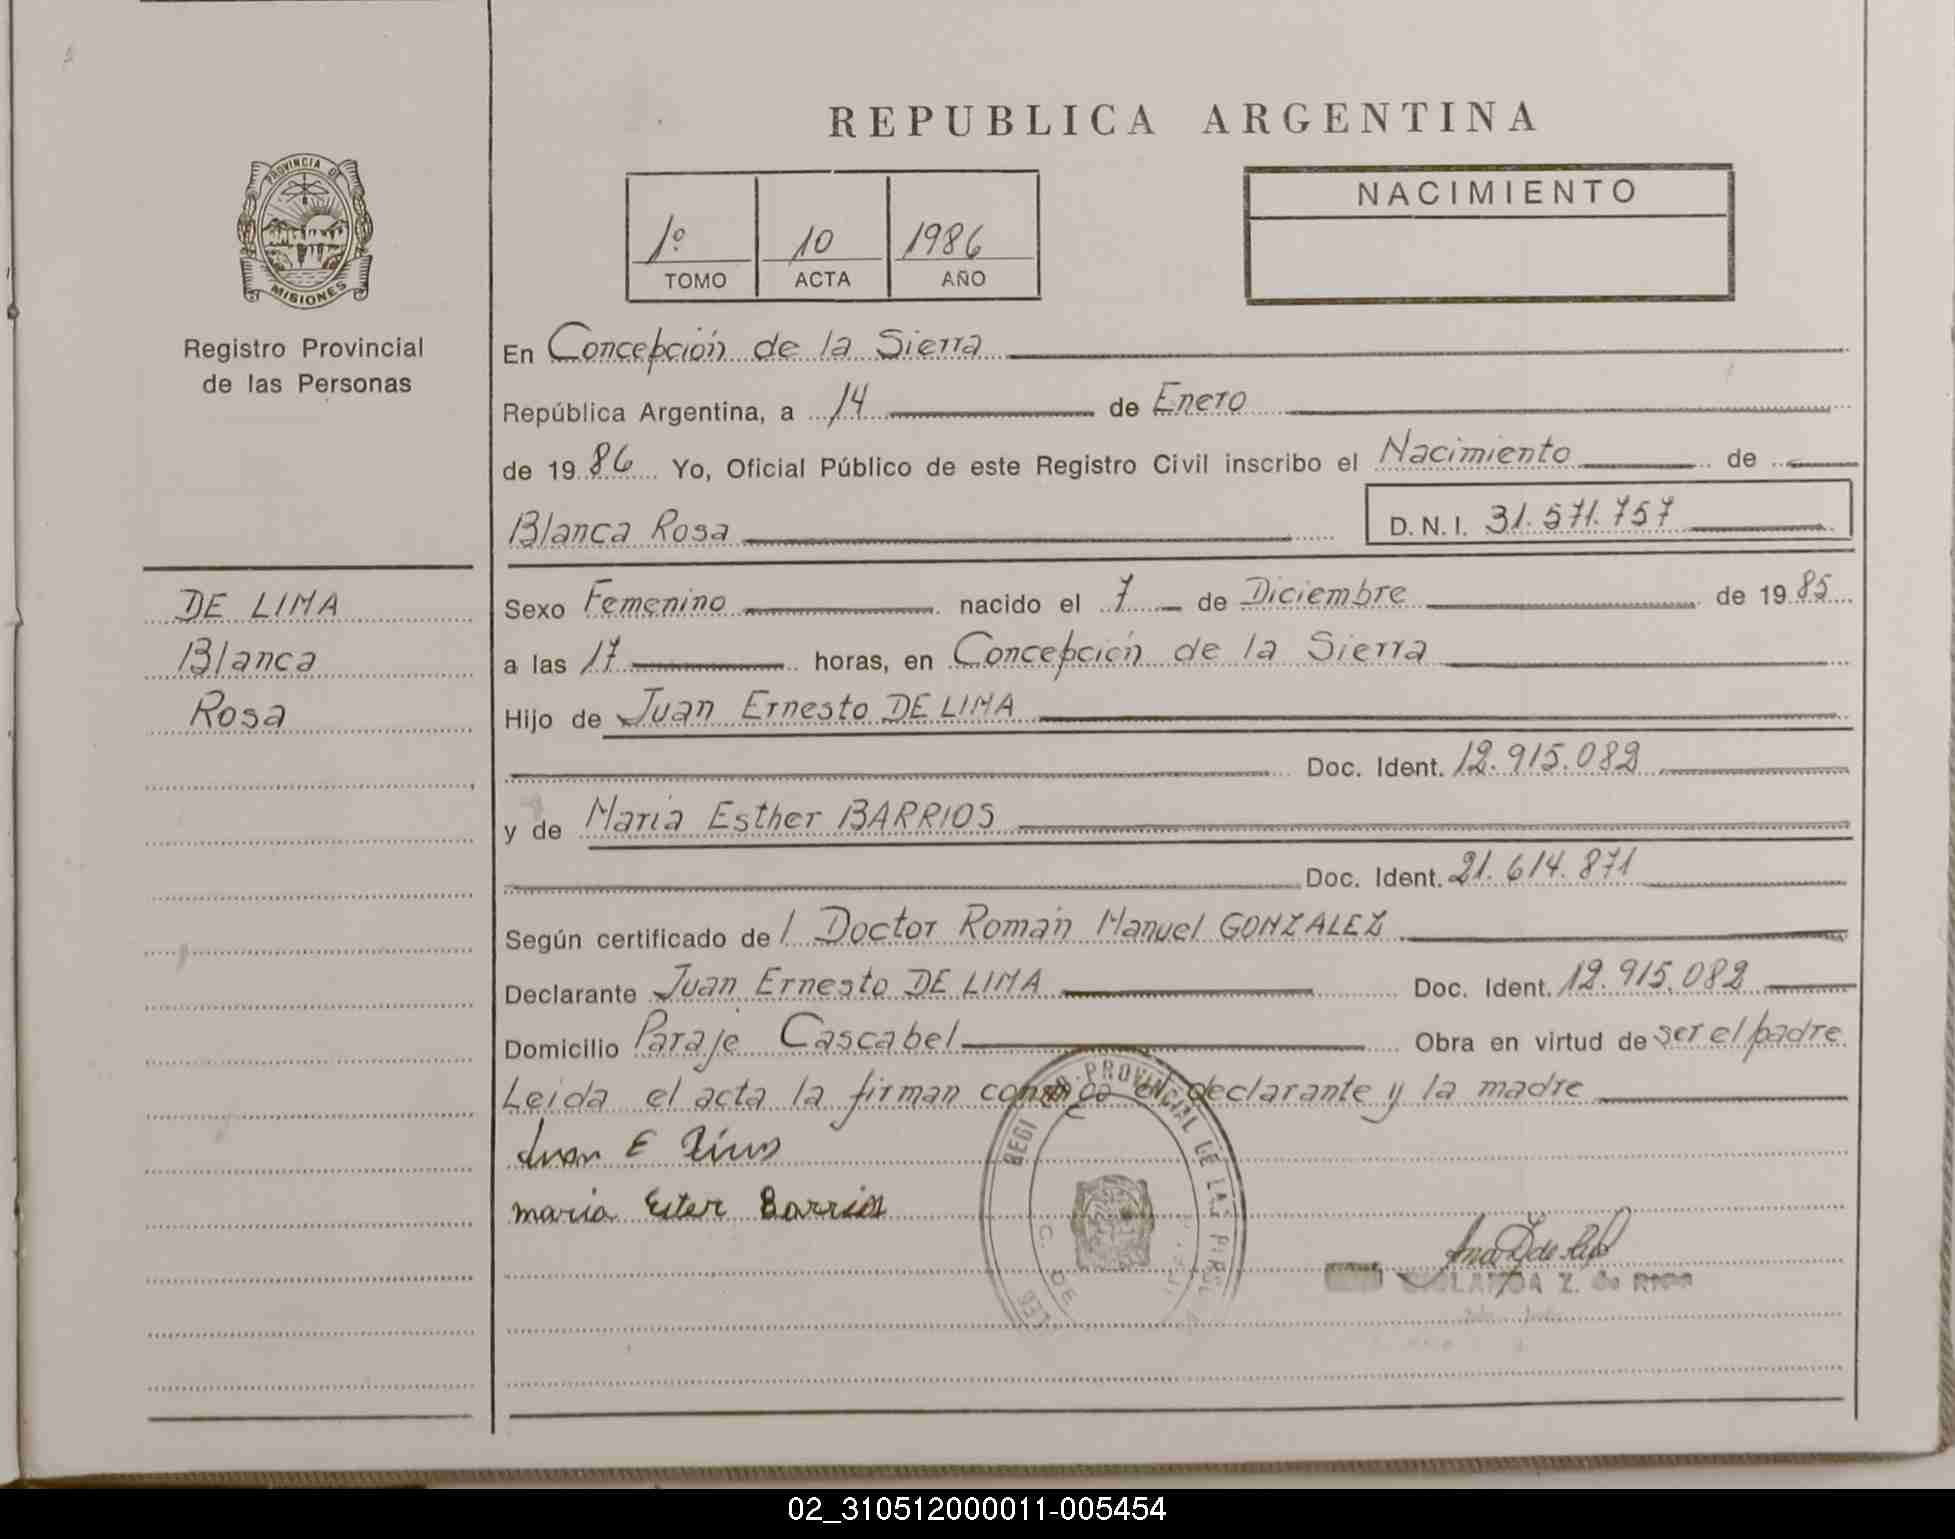 REPUBLICA ARGENTINA
PROVINCIA DE
MISIONES
Registro Provincial
de las Personas
1º 10 1986
TOMO ACTA AÑO
NACIMIENTO
En Concepción de la Sierra
República Argentina, a 14 de Enero
de 1986 Yo, Oficial Público de este Registro Civil inscribo el Nacimiento de
Blanca Rosa D.N.I. 31.571.757
DE LIMA
Blanca
Rosa
Sexo Femenino nacido el 7 de Diciembre de 1985
a las 17 horas, en Concepción de la Sierra
Hijo de Juan Ernesto DE LIMA
Doc. Ident. 12.915.082
y de Maria Esther BARRIOS
Doc. Ident. 21.614.871
Según certificado de l Doctor Román Manuel GONZALEZ
Declarante Juan Ernesto DE LIMA Doc. Ident. 12.915.082
Domicilio Paraje Cascabel Obra en virtud de ser el padre
Leida el acta la firman conmigo el declarante y la madre
Juan E
maria Ester Barrios
PROVINCIAL DE LAS
Z. de
02_310512000011-005454